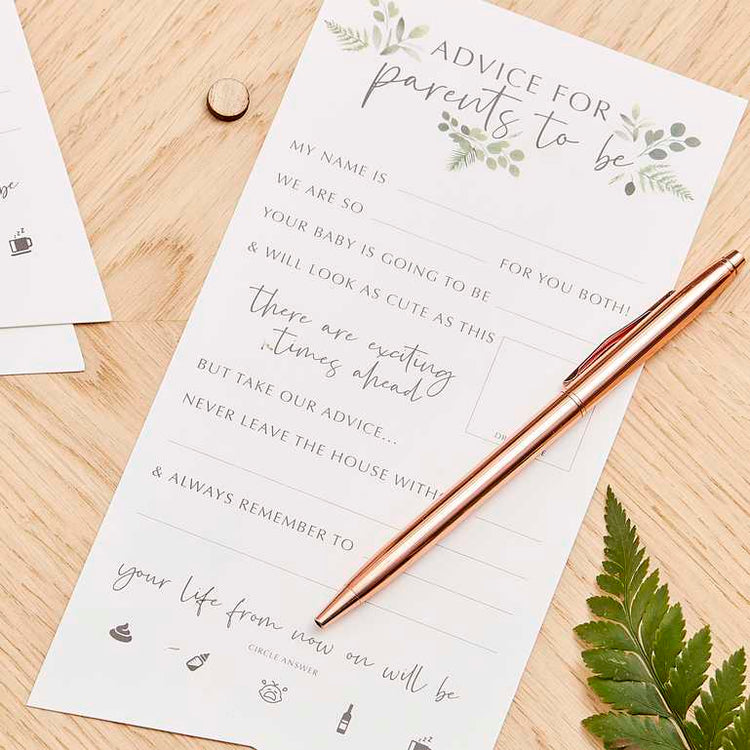 ADVICE FOR
parents to be
MY NAME IS
WE ARE SO FOR YOU BOTH!
YOUR BABY IS GOING TO BE
& WILL LOOK AS CUTE AS THIS
there are exciting
times ahead
BUT TAKE OUR ADVICE...
NEVER LEAVE THE HOUSE WITH
& ALWAYS REMEMBER TO
your life from now on will be
CIRCLE ANSWER
zzz
be
zzz